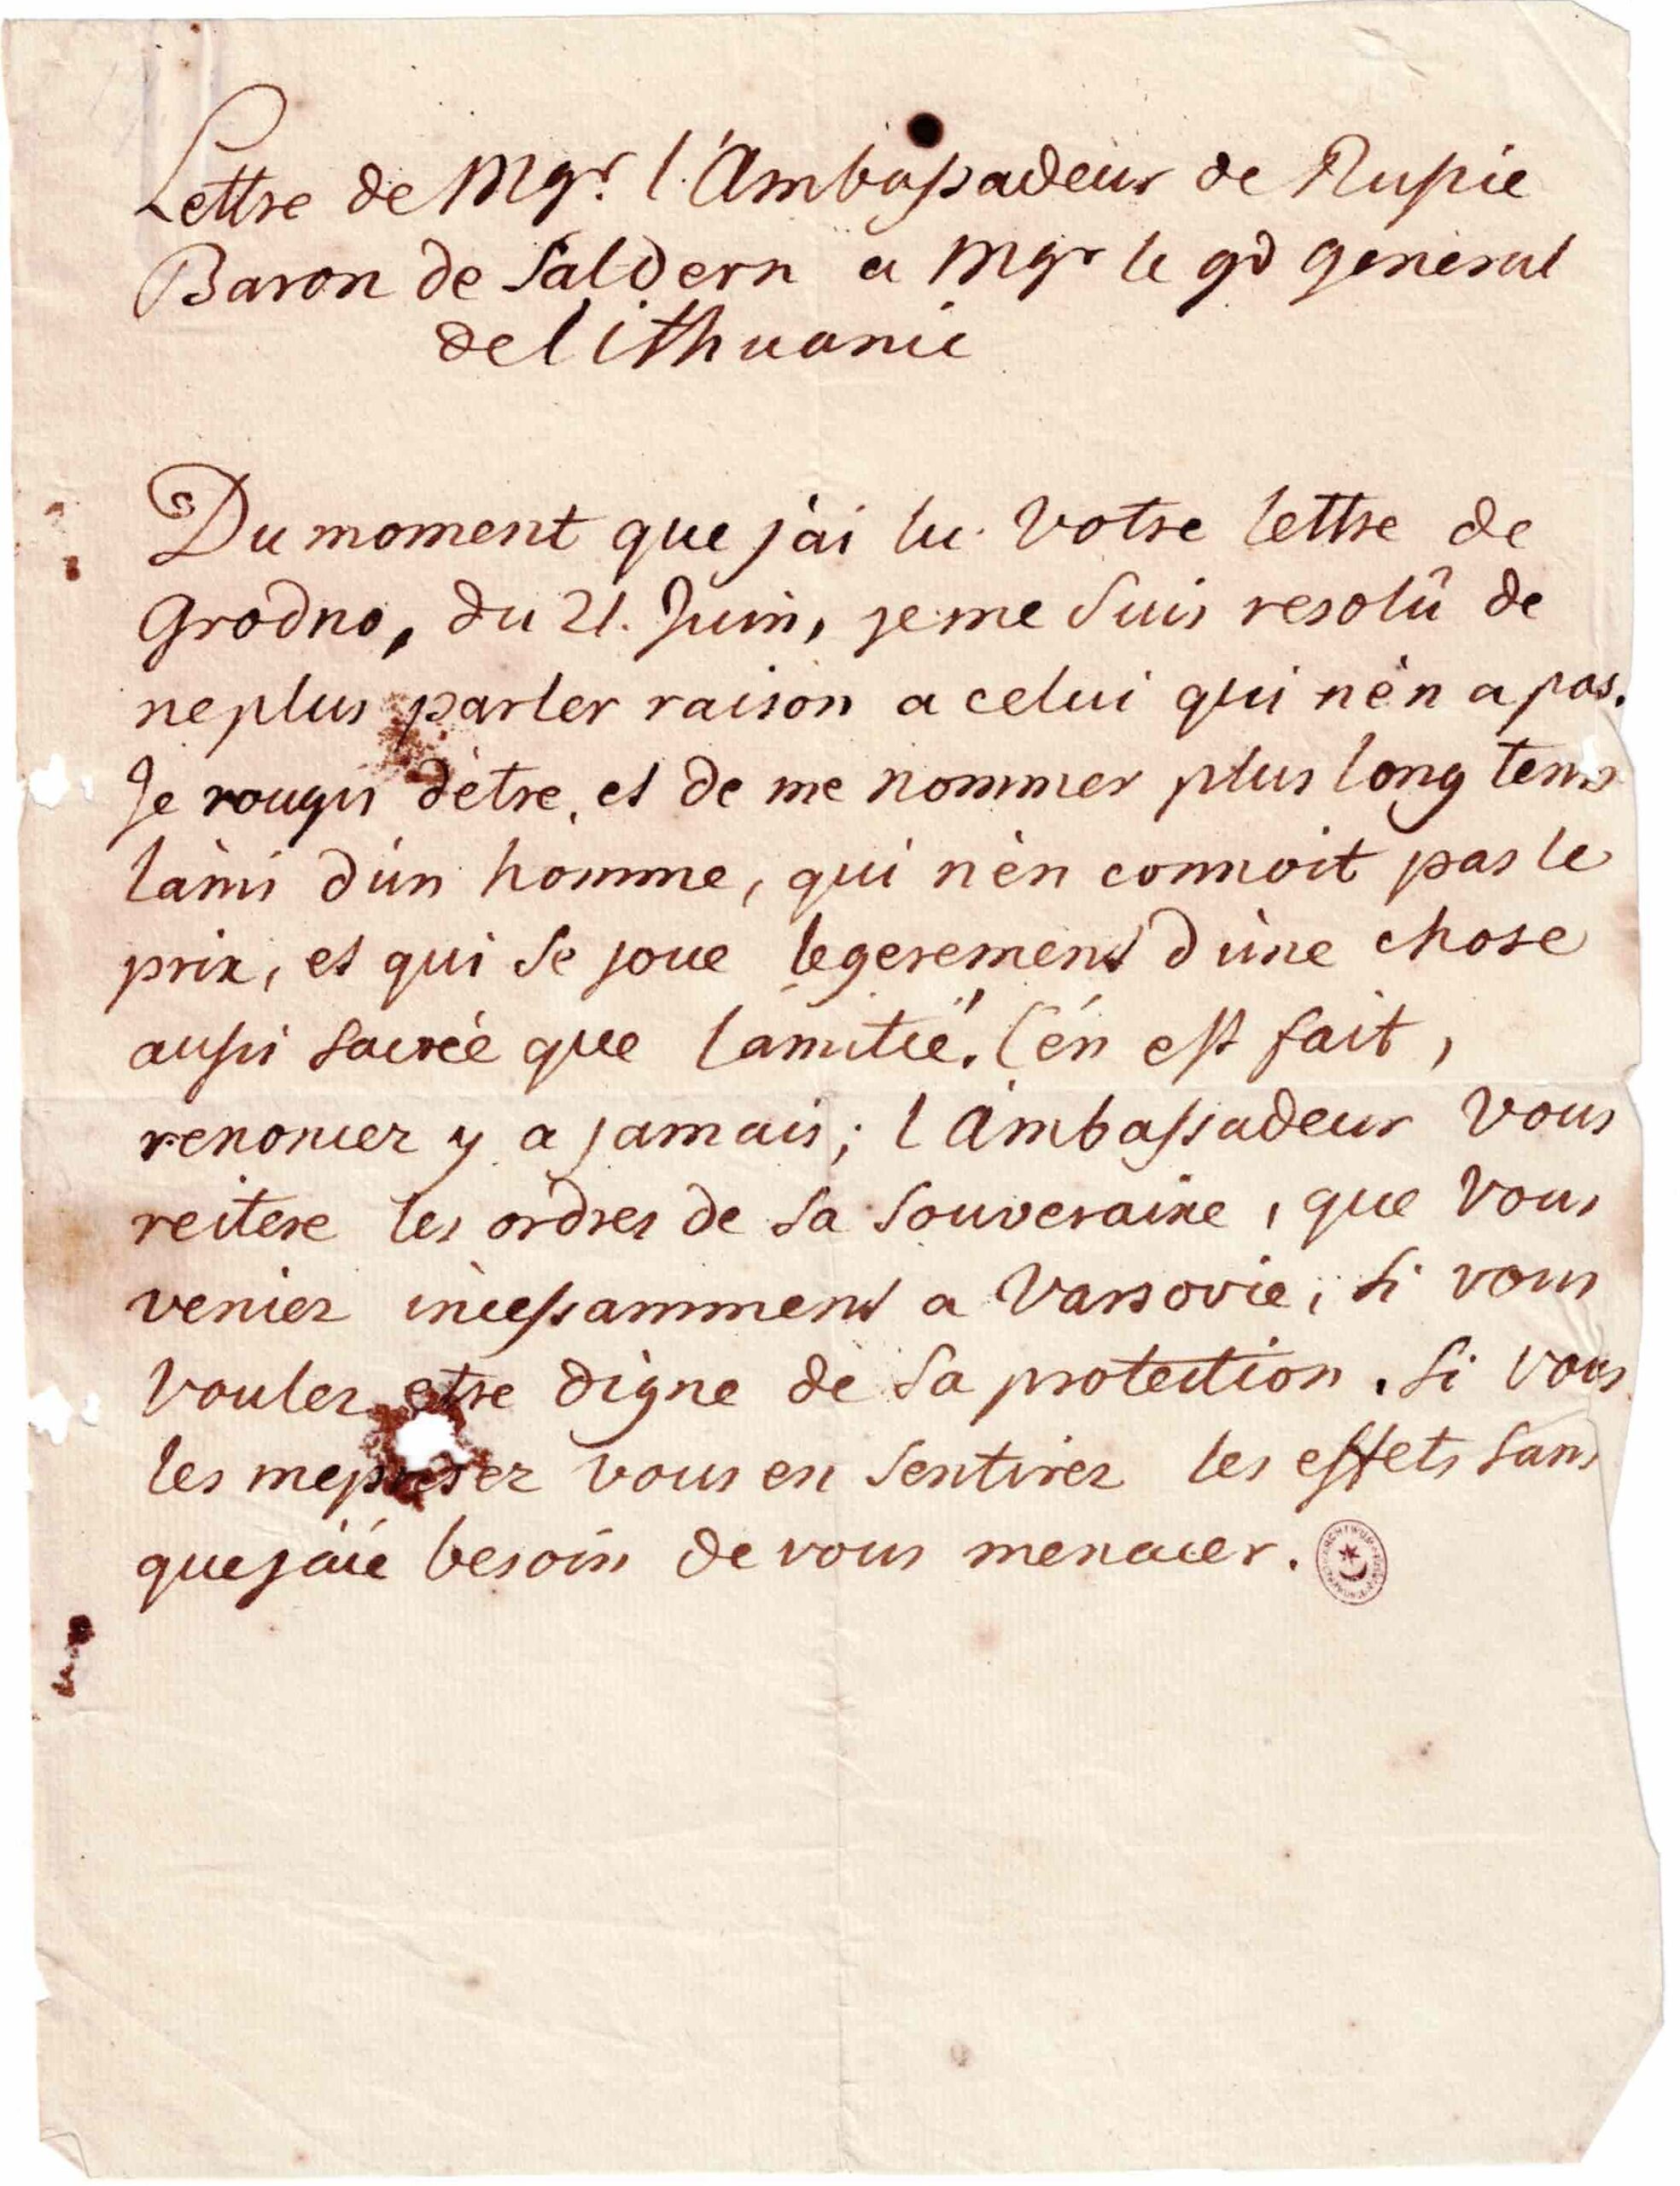 Lettre de Mgr. l'Ambassadeur de Russie
Baron de Saldern a Mgr le gd general
de lithuanie
Du moment que j'ai lu votre lettre de
Grodno, du 21. Juin, je me suis resolû de
ne plus parler raison a celui qui n'èn a pas.
Je rougis d'ètre, et de me nommer plus long tems
l'àmi d'ùn homme, qui n'èn connoit pas le
prix, et qui se joue legerement d'ùne chose
aussi sacrèe que l'amitié. C'én est fait,
renoncez y a jamais; l'Ambassadeur vous
reitere les ordres de sa souveraine, que vous
veniez incessamment a Varsovie, si vous
voulez etre digne de sa protection. Si vous
les meprisez vous en sentirez les effets sans
que j'àie besoin de vous menacer.